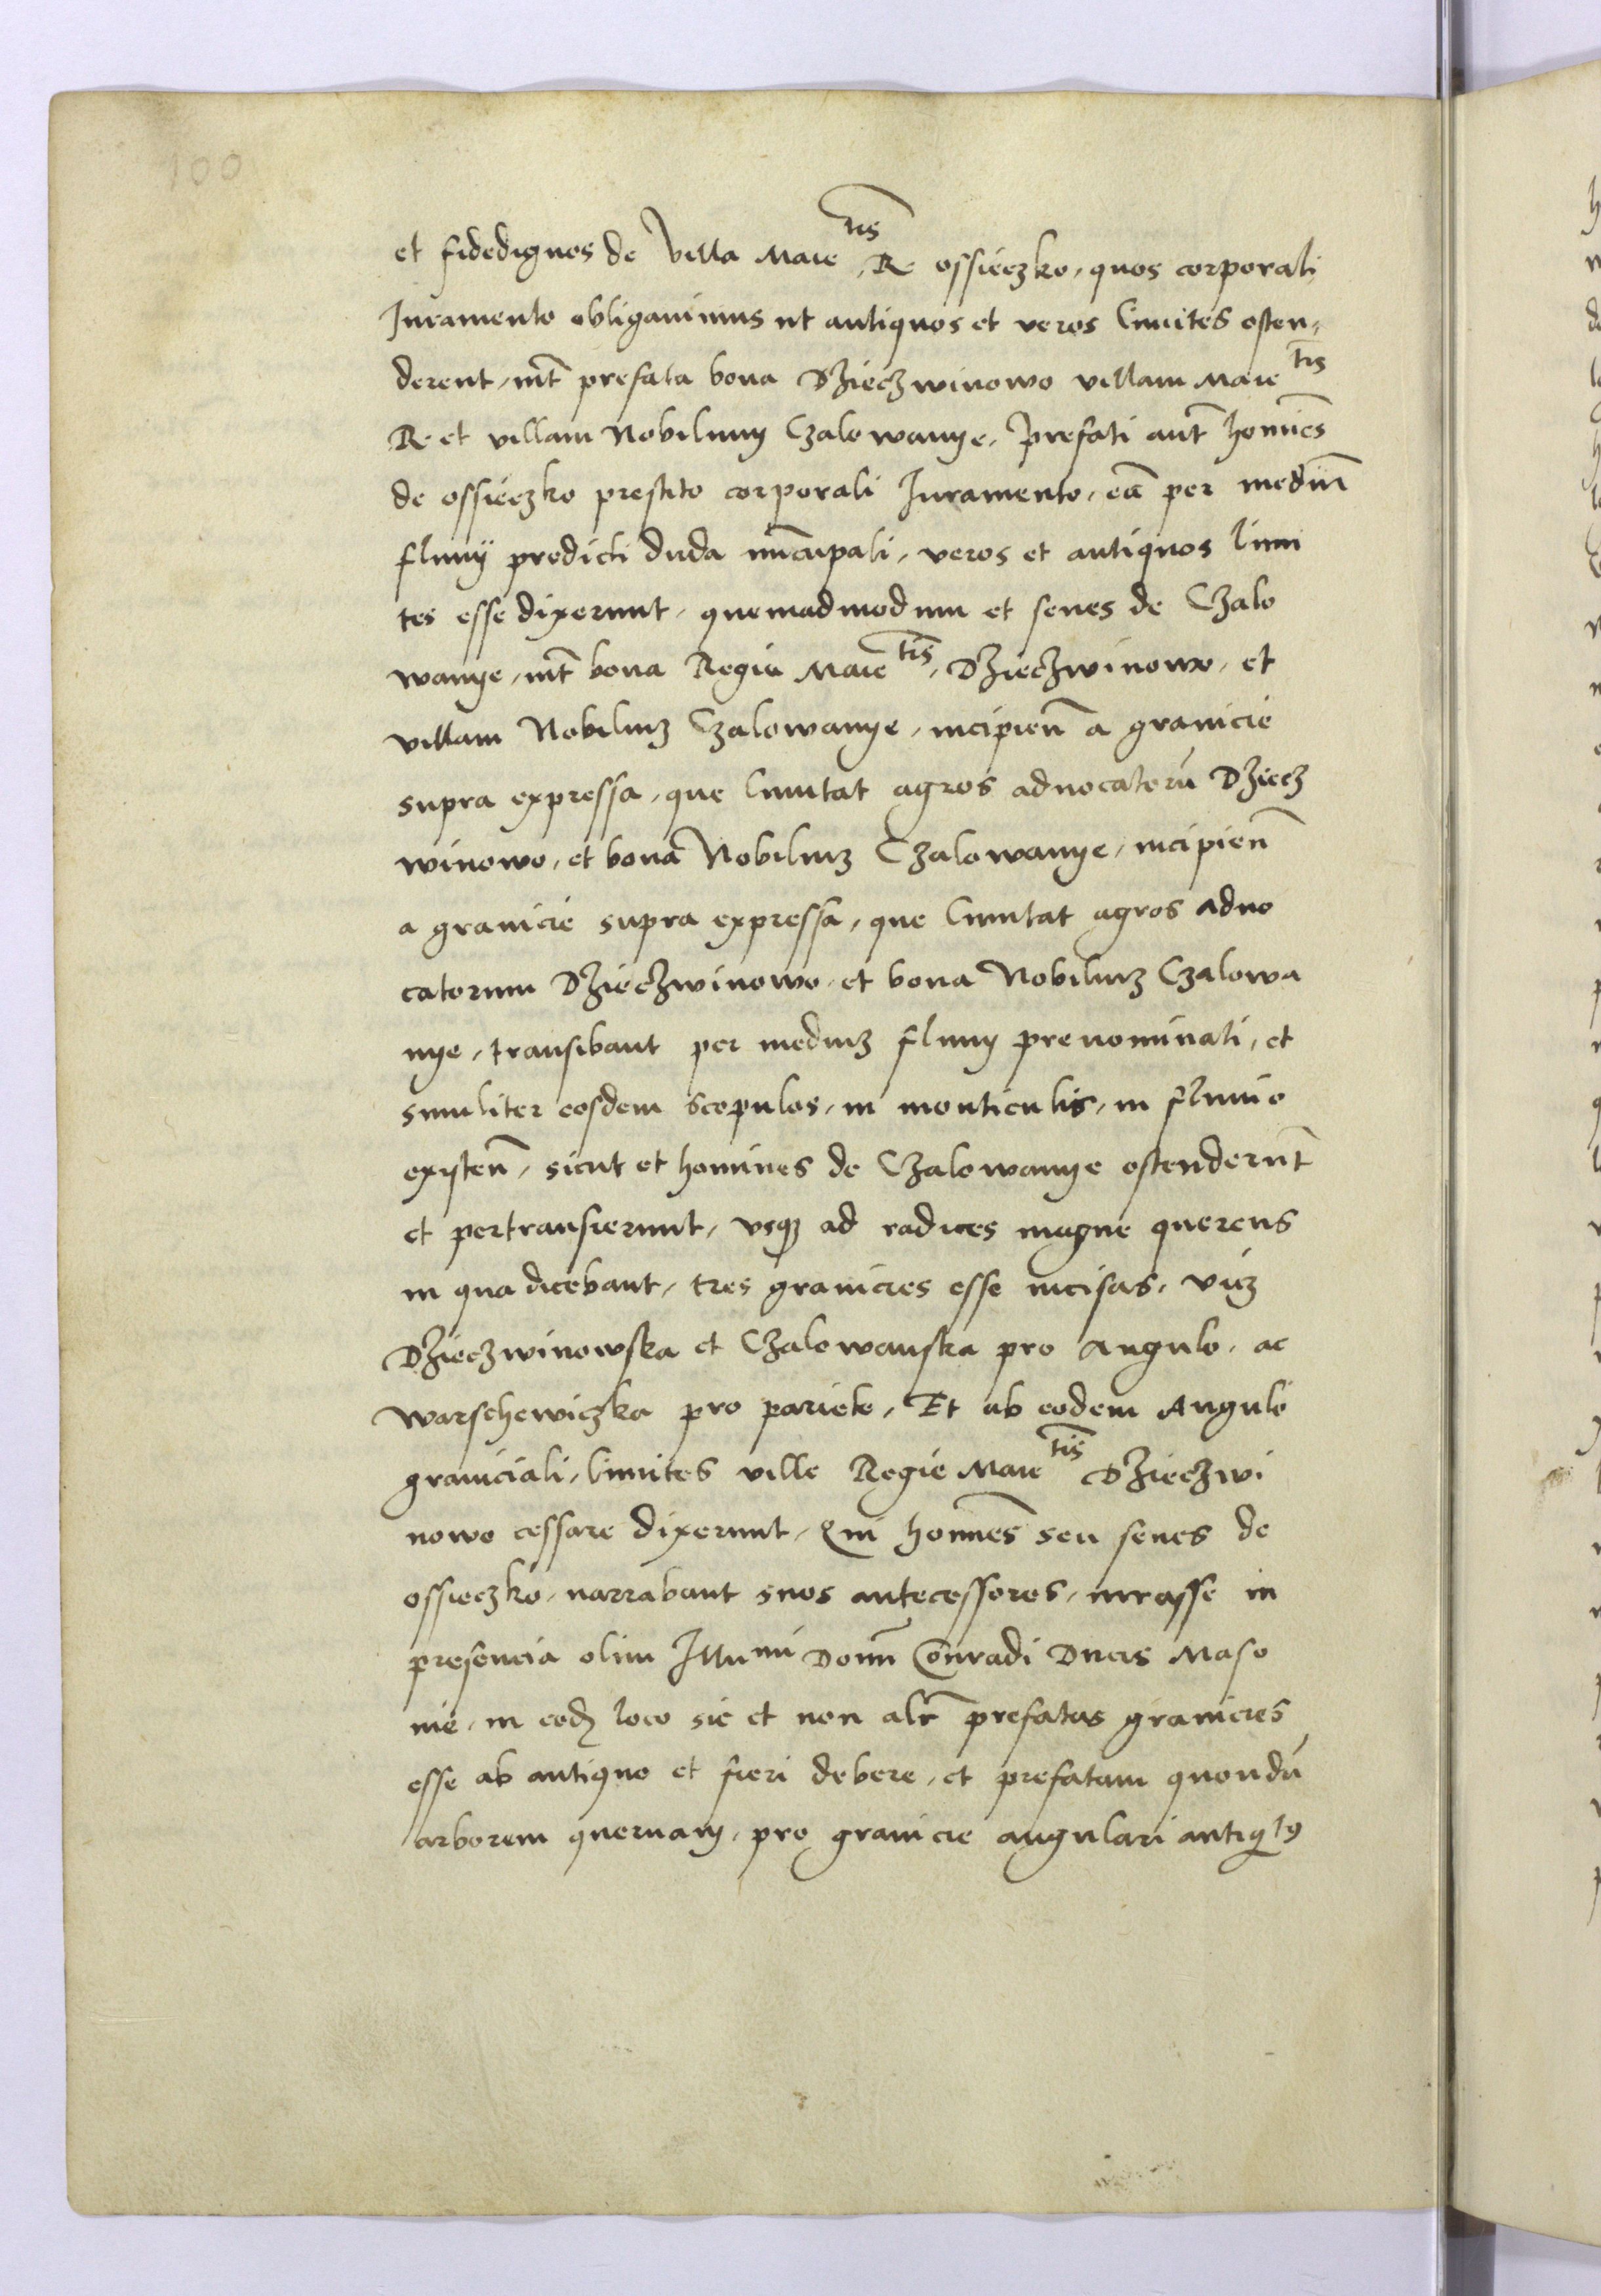 100
et fidedignos de villa Maie^tis R ossieczko, quos corporali
Iuramento obligauimus ut antiquos et veros limites osten,
derent, int̄ prefata bona Dzieczwinowo villam Maie^tis
R et villam Nobilium Czalowanye, prefati aut̄ homīes
de ossieczko prestito corporali Iuramento, eciā per mediū
fluuij predicti duda nūcupati, veros et antiquos limi
tes esse dixerunt, quemadmodum et senes de Czalo
wanye, int̄ bona Regie Maie^tis, Dzieczwinowo, et
villam Nobiliuʒ Czalowanye, incipien̄ a granicie
supra expressa, que limitat agros aduocatorū Dziecz
winowo, et bona Nobiliuʒ Czalowanye, incipien̄
a granicie supra expressa, que limitat agros aduo
catorum Dzieczwinowo, et bona Nobiliuʒ Czalowa
nye, transibant per mediuʒ fluuij prenominati, et
similiter eosdem scopulos, in monticulis, in fluuio
existen̄, sicut et homines de Czalowanye ostenderūt
et pertransierunt, vsqꝫ ad radices magne quercus
in qua dicebant, tres granicies esse incisas, viʒ
Dzieczwinowska et Czalowanska pro angulo, ac
warschewiczka pro pariete, Et ab eodem Angulo
graniciali, limites ville Regie Maie^tis Dzieczwi
nowo cessare dixerunt, Qui homīes seu senes de
ossieczko, narrabant suos antecessores, iurasse in
presencia olim Illumi Domī Conradi Ducis Maso
uie, in eodꝫ loco sic et non alr̄ prefatas granicies
esse ab antiquo et fieri debere, et prefatam quondā
arborem quernam, pro granicie angulari antiqⁱtꝰ